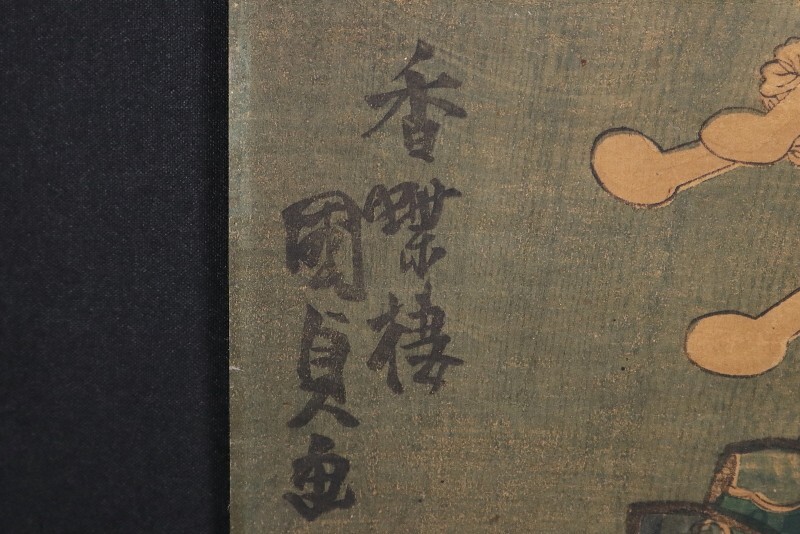 香蝶棲
國貞画